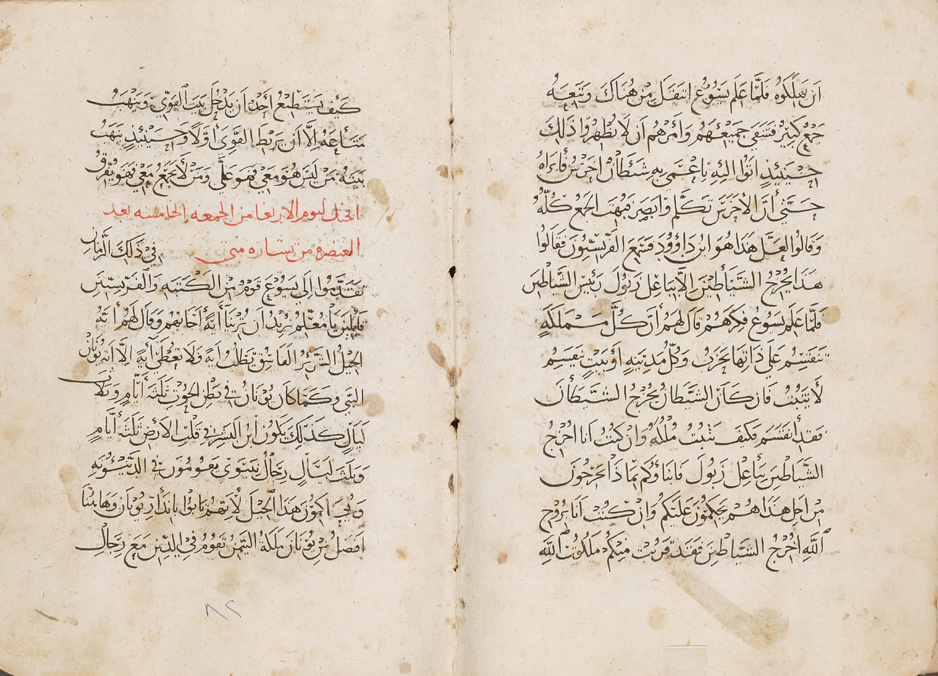 ان يهلكوه فلما علم يسوع انتقل من هناك وتبعه
جمع كثير فشفى جميعهم وامرهم ان لا يظهروا ذلك
حينئذ اتوا اليه باعمى به شيطان اخرس فابراه
حتى ان الاخرس تكلم وابصر فبهت الجمع كله
وقالوا لعل هذا هو ابن داوود فسمع الفريسيون فقالوا
هذا يخرج الشياطين الا بباعل زبول رئيس الشياطين
فلما علم يسوع فكرهم قال لهم ان كل مملكة
تنقسم على ذاتها تخرب وكل مدينة او بيت ينقسم
لا يثبت فان كان الشيطان يخرج الشيطان
فقد انقسم فكيف تثبت ملكه وان كنت انا اخرج
الشياطين بباعل زبول فابناوكم بماذا يخرجون
من اجل هذا هم يحكمون عليكم وان كنت انا بروح
الله اخرج الشياطين فقد قربت منكم ملكوت الله
كيف يستطيع احد ان يدخل بيت القوي وينهب
متاعه الا ان يربط القوي اولا وحينئذ ينهب
بيته من ليس هو معي فهو علي ومن لا يجمع معي فهو يفرق
انجيل ليوم الاربعا من الجمعه الخامسه بعد
العنصره من بشاره متى في ذلك الزمان
تقدموا الى يسوع قوم من الكتبة والفريسيين
قايلين يا معلم نريد ان ترينا آية اجابهم وقال لهم
الجيل الشرير الفاسق يطلب اية ولا يعطى اية الا اية يونان
النبي وكما كان يونان في بطن الحوت ثلثة أيام وثلاث
ليال كذلك يكون ابن البشر في قلب الارض ثلثة أيام
وثلث ليال رجال نينوى يقومون في الدينونة
هذا الجيل لانهم تابوا بانذار يونان وهاهنا
افضل من يونان ملكة التيمن تقوم في الدين مع رجال
٨٢